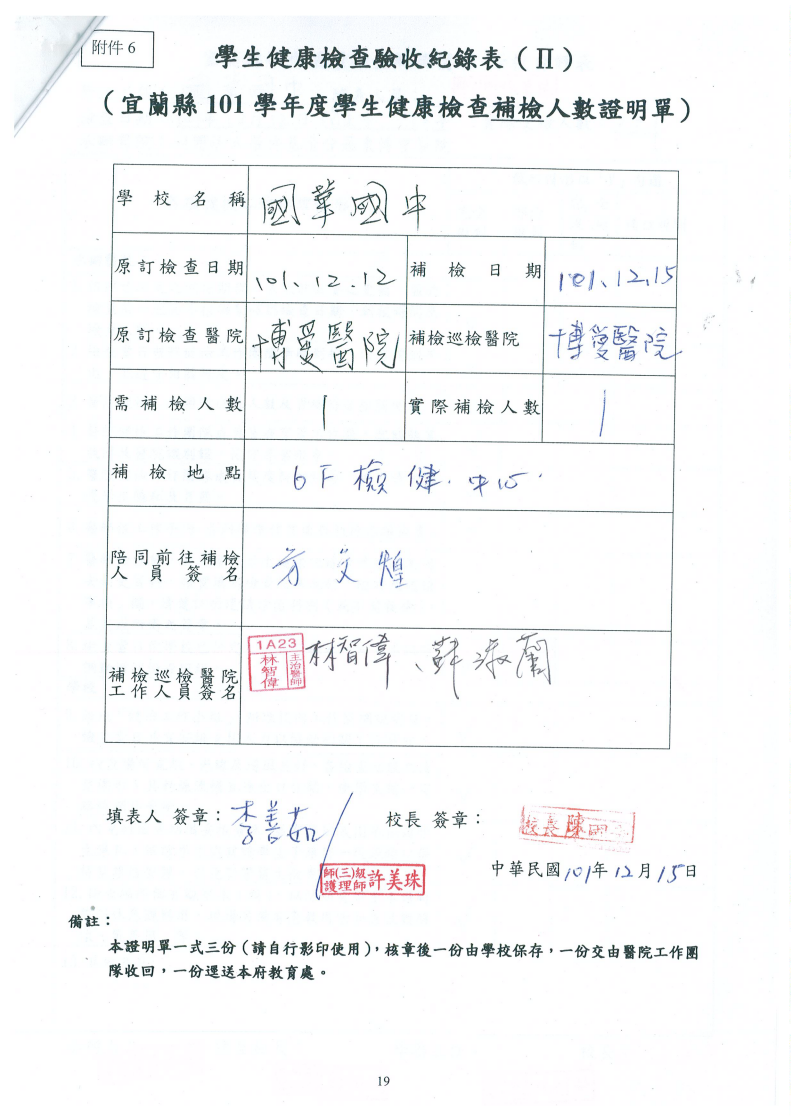 附件 6
學生健康檢查驗收紀錄表（Ⅱ）
（宜蘭縣 101 學年度學生健康檢查補檢人數證明單）
學校名稱 國華國中
原訂檢查日期 101、12.12 補檢日期 101、12.15
原訂檢查醫院 博愛醫院 補檢巡檢醫院 博愛醫院
需補檢人數 1 實際補檢人數 1
補檢地點 6F 檢健.中心.
陪同前往補檢
人員簽名 方文煌
1A23
林智偉
主治醫師
林智偉、蘇淑蘭
補檢巡檢醫院
工作人員簽名
填表人 簽章： 李善茹 校長 簽章： 校長 陳
師(三)級
護理師 許美珠
中華民國 101 年 12 月 15 日
備註：
本證明單一式三份（請自行影印使用），核章後一份由學校保存，一份交由醫院工作團
隊收回，一份逕送本府教育處。
19